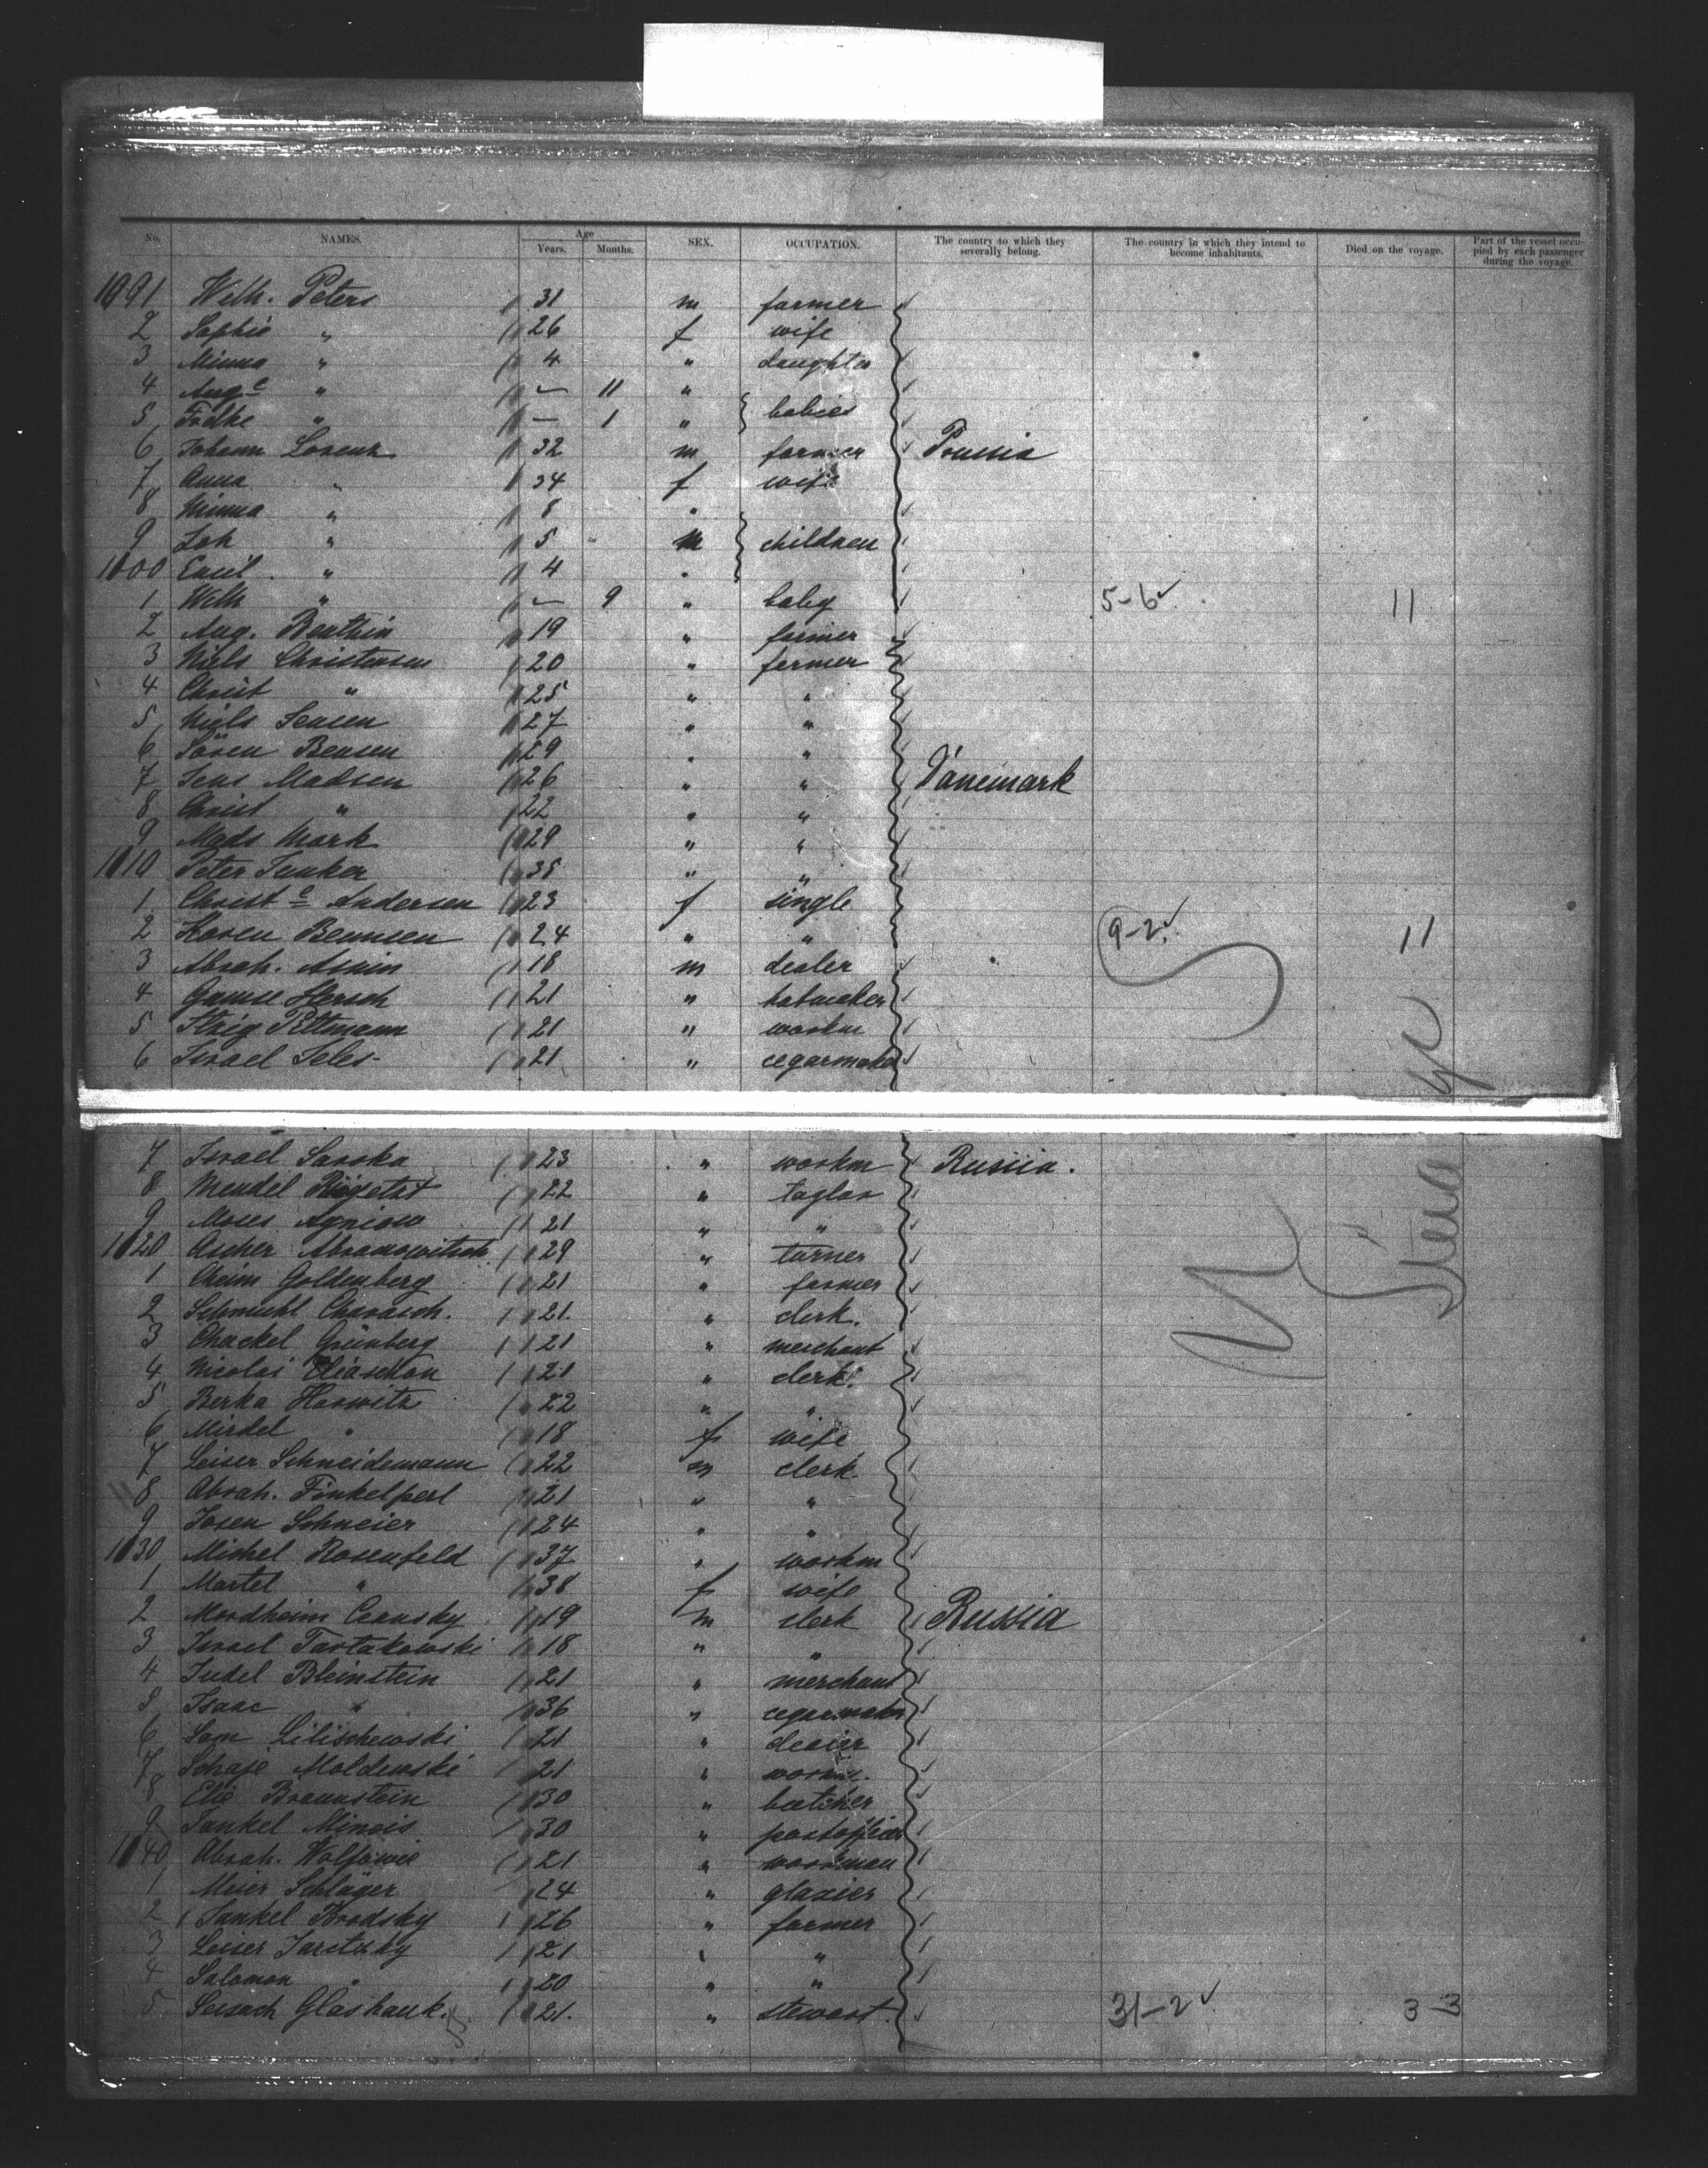 No. NAMES. Age Years. Months. SEX. OCCUPATION. The country to which they severally belong. The country in which they intend to become inhabitants. Died on the voyage. Part of the vessel occupied by each passenger during the voyage.
1091 Wilh. Peters 31 m farmer
2 Sophie " 26 f wife
3 Minna " 4 " daughter
4 Aug.e " — 11 "
5 " — 1 " babies
6 Johann Lorenz 32 m farmer Prussia
7 Anna " 34 f wife
8 Minna " 8 "
9 Joh " 5 m children
1000 Emil " 4 "
1 Wilh " — 9 " baby 5-6 11
2 Aug. 19 " farmer
3 Niels Christensen 20 " farmer
4 Christ " 25 " "
5 Niels Jensen 27 " "
6 Sören Bensen 29 " "
7 Jens Madsen 26 " " Dänemark
8 Christ " 22 " "
9 Mads Mork 29 " "
1010 Peter Junker 35 " "
1 Christ.e Andersen 23 f single
2 Karen 24 " " 9-2 11
3 Abrah. 18 m dealer
4 Hersch 21 " hatmaker
5 21 " workm
6 Israel Seles 21 " cegarmaker
7 Israel 23 " workm Russia.
8 Mendel 22 " taylor
9 Moses 21 " "
1020 Ascher Abramowitsch 29 " turner
1 Cheim Goldenberg 21 " farmer
2 Schmuhl Charasch. 21. " clerk.
3 Chackel Grünberg 21 " merchant
4 Nicolai 21 " clerk.
5 Berka Horwitz 22 " "
6 Mirdel " 18 f wife
7 Leiser Schneidemann 22 m clerk
8 Abrah. Finkelperl 21 " "
9 Josen Schneier 24 " "
1030 Michel Rosenfeld 37 " workm
1 Martel " 38 f wife
2 Mordheim 19 m clerk Russia
3 Israel Tartakowski 18 " "
4 Judel Bleinstein 21 " merchant
5 Isaac " 36 " cegarmaker
6 Sam Lilischewski 21 " dealer
7 21 " workm.
8 Elie Braunstein 30 " butcher
9 Jankel 30 "
1040 Abrah. 21 " workman
1 Meier Schläger 24 " glazier
2 Jankel Brodsky 26 " farmer
3 Leiser 21 " "
4 Salomon " 20 " "
5 Glashauk. 21. " stewart. 31-2 3 3